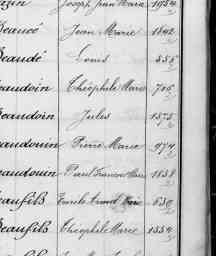 Joseph Jean Marie 1954
Beaucé Jean Marie 1842
Beaudé Louis 555
Beaudoin Théophile Marie 705
Beaudoin Jules 1575
Beaudouin Pierre Marie 974
Beaudouin Paul Francois Marie 1838
Beaufils Marie 630
Beaufils Théophile Marie 1554